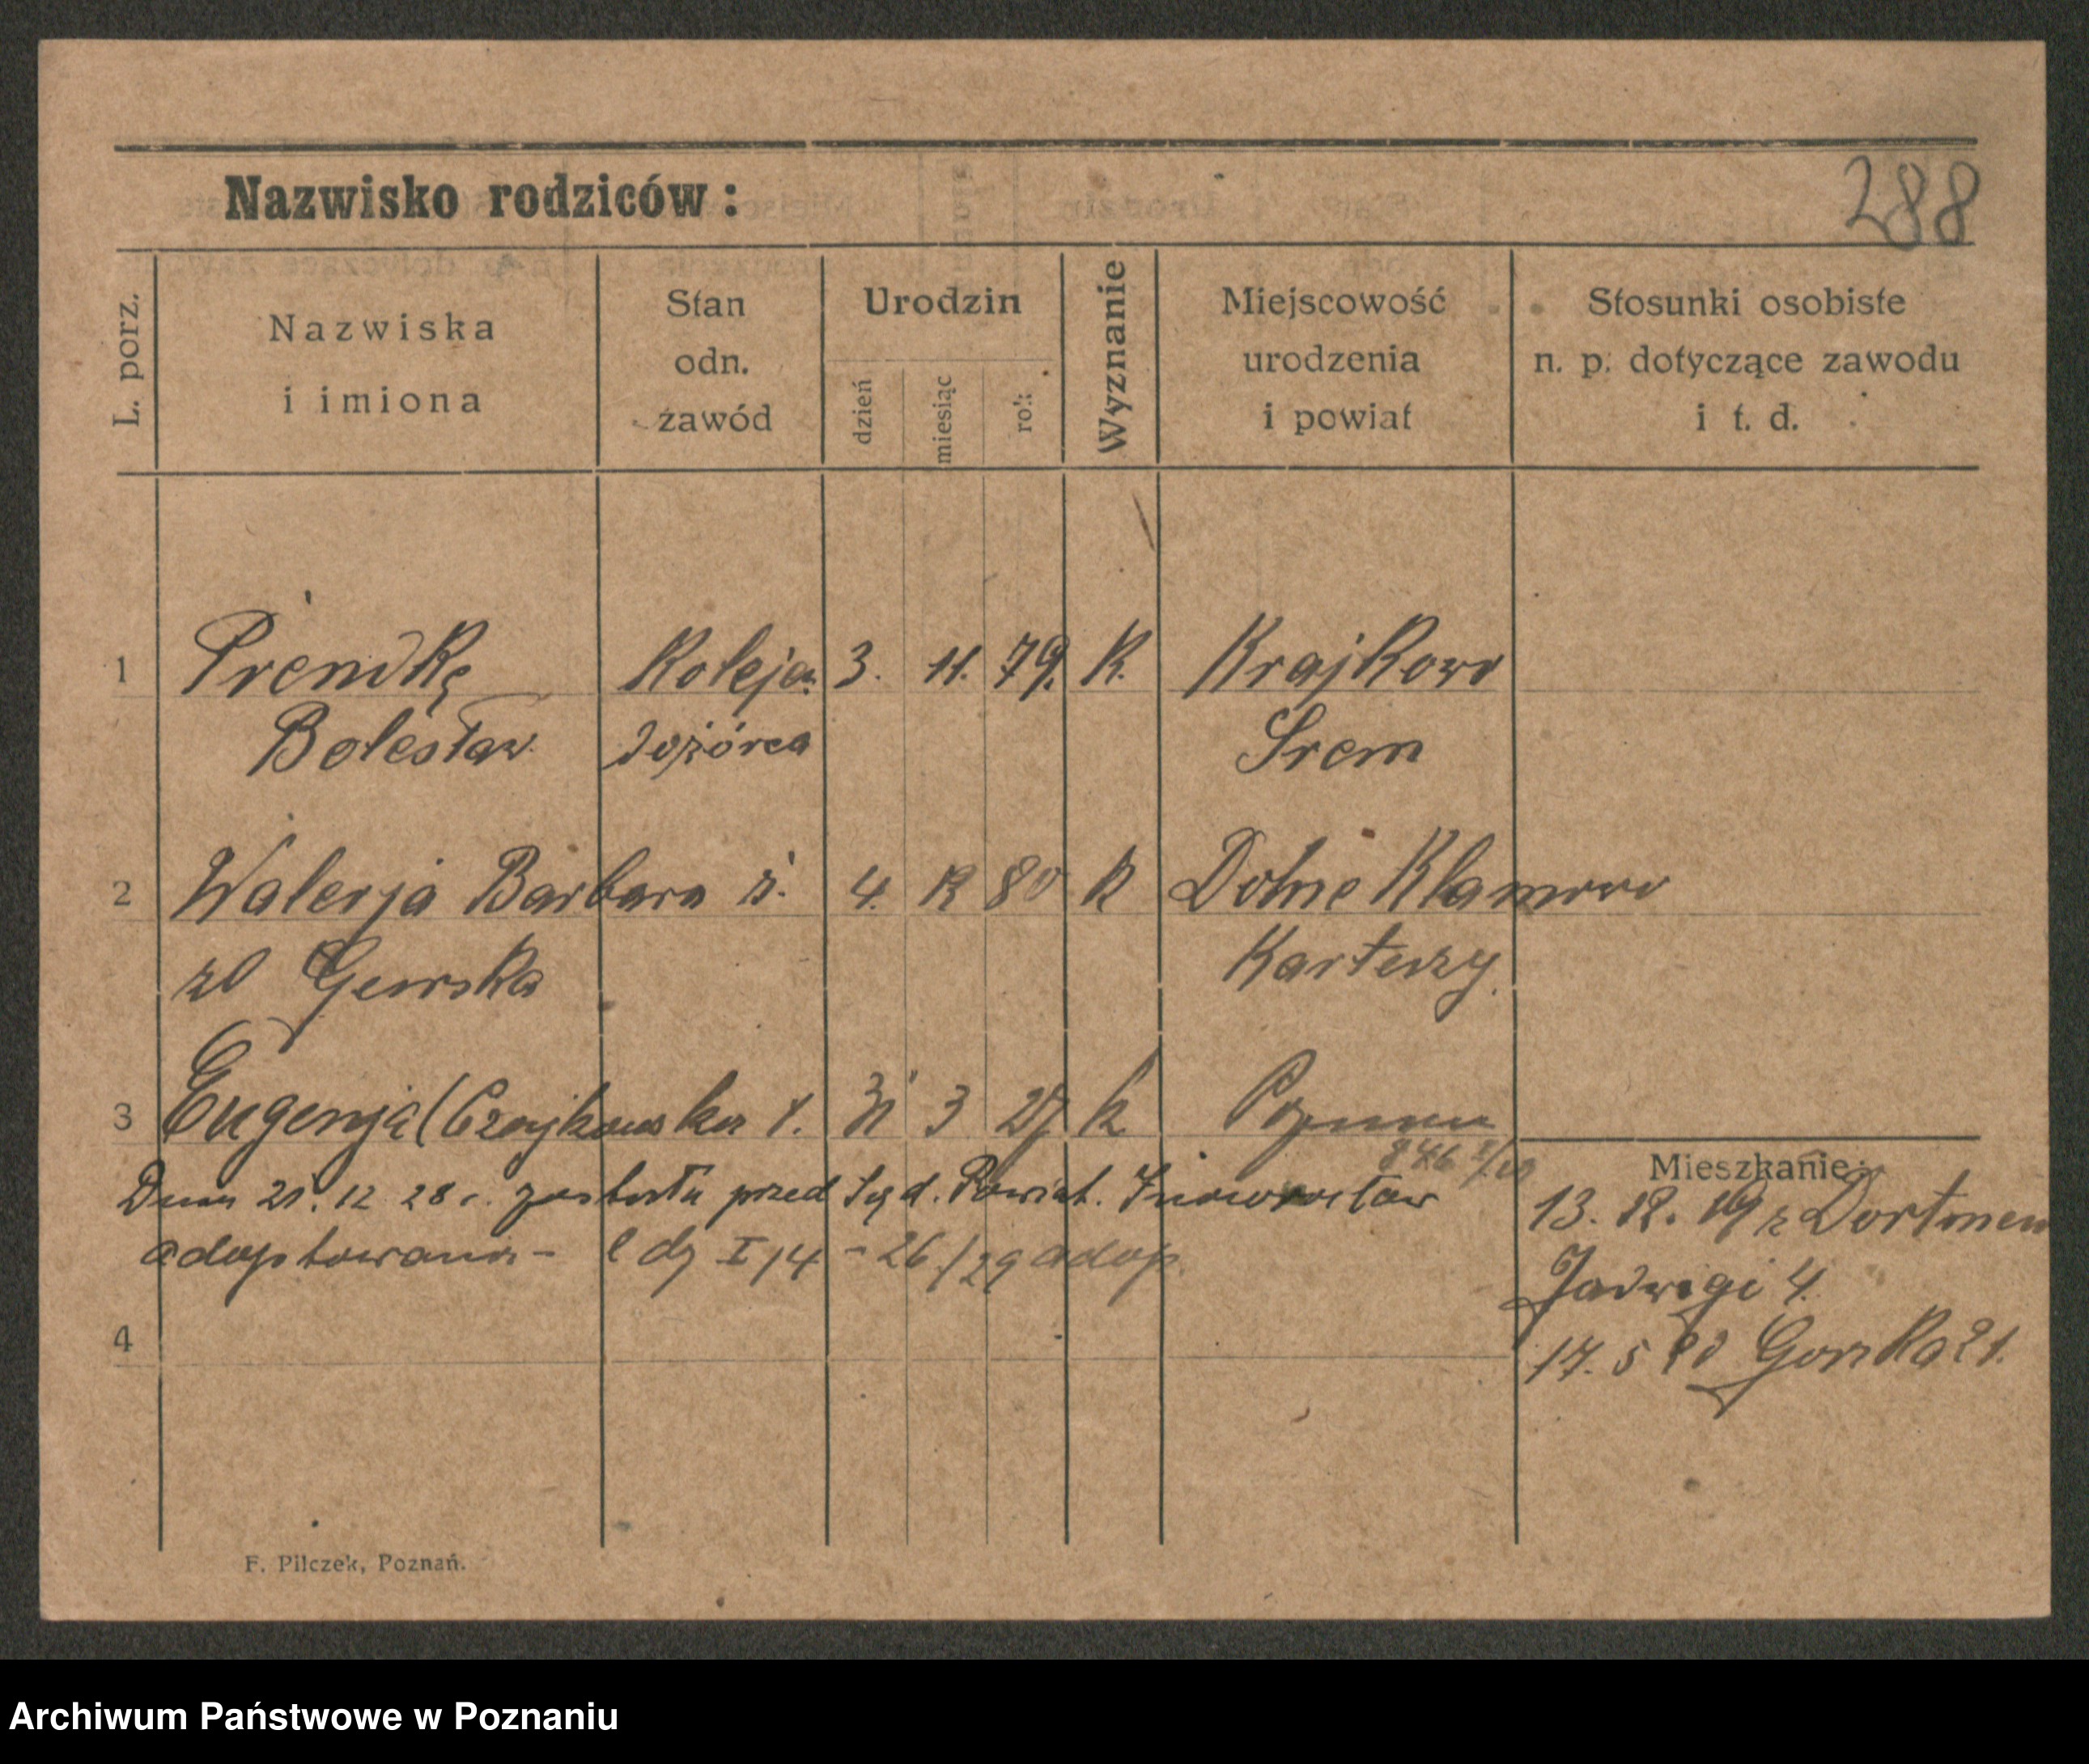 Nazwisko rodziców:
288
L. porz.
Nazwiska
i imiona
Stan
odn.
zawód
Urodzin
dzień
miesiąc
rok
Wyznanie
Miejscowość
urodzenia
i powiat
Stosunki osobiste
n. p. dotyczące zawodu
i t. d.
1 Prendke Koleja. 3. 11. 79. K. Krajkowo
Bolesław dozórca Srem
2 Walerja Barbara ż. 4. 12 80 K Dolne Klanowo
zd Gewska Kartuzy.
3 Eugenja (Czajkowska 31 3 27 k Poznan
846
Dnia 21. 12 28 r. została przed Sąd. Powiat. Inowrocław
adoptowana - l dz I 14 - 26/29 adop.
Mieszkanie:
13. 12. 19 z Dortmun
Jadwigi 4.
17. 5 20 Gorska 21.
4
F. Pilczek, Poznań.
Archiwum Państwowe w Poznaniu